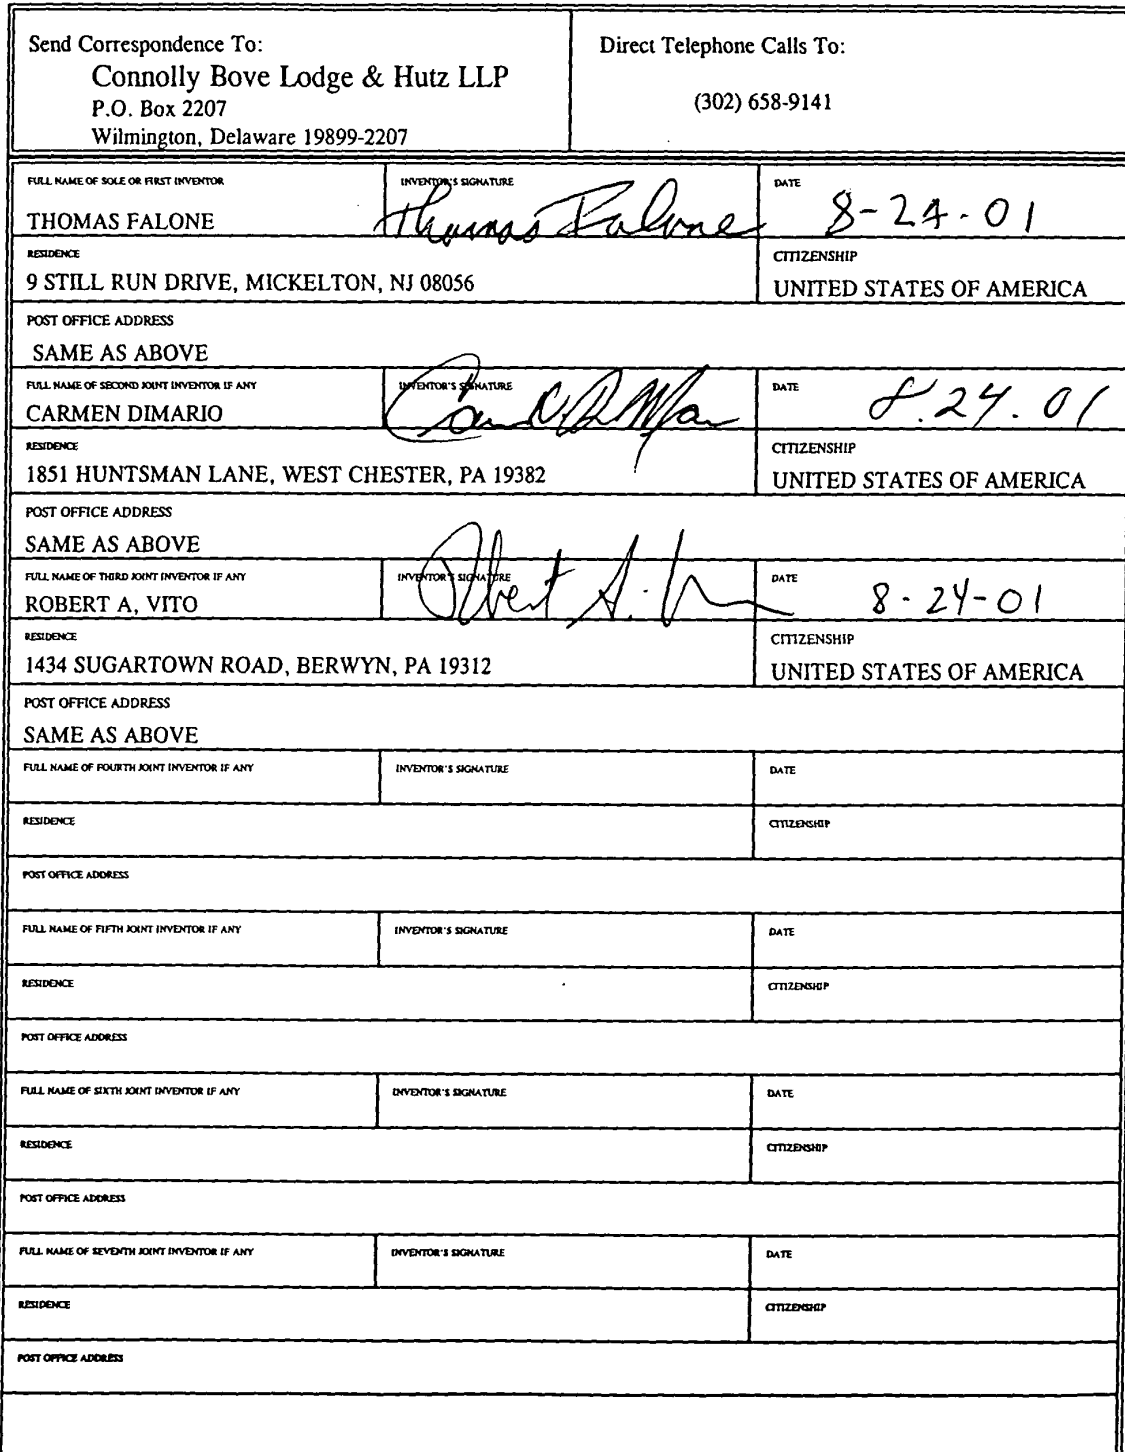 Send Correspondence To:
Connolly Bove Lodge & Hutz LLP
P.O. Box 2207
Wilmington, Delaware 19899-2207
Direct Telephone Calls To:
(302) 658-9141
FULL NAME OF SOLE OR FIRST INVENTOR
THOMAS FALONE
INVENTOR'S SIGNATURE
Thomas Falone
DATE
8-24-01
RESIDENCE
9 STILL RUN DRIVE, MICKELTON, NJ 08056
CITIZENSHIP
UNITED STATES OF AMERICA
POST OFFICE ADDRESS
SAME AS ABOVE
FULL NAME OF SECOND JOINT INVENTOR IF ANY
CARMEN DIMARIO
INVENTOR'S SIGNATURE
DATE
8.24.01
RESIDENCE
1851 HUNTSMAN LANE, WEST CHESTER, PA 19382
CITIZENSHIP
UNITED STATES OF AMERICA
POST OFFICE ADDRESS
SAME AS ABOVE
FULL NAME OF THIRD JOINT INVENTOR IF ANY
ROBERT A, VITO
INVENTOR'S SIGNATURE
Robert A.
DATE
8-24-01
RESIDENCE
1434 SUGARTOWN ROAD, BERWYN, PA 19312
CITIZENSHIP
UNITED STATES OF AMERICA
POST OFFICE ADDRESS
SAME AS ABOVE
FULL NAME OF FOURTH JOINT INVENTOR IF ANY
INVENTOR'S SIGNATURE
DATE
RESIDENCE
CITIZENSHIP
POST OFFICE ADDRESS
FULL NAME OF FIFTH JOINT INVENTOR IF ANY
INVENTOR'S SIGNATURE
DATE
RESIDENCE
CITIZENSHIP
POST OFFICE ADDRESS
FULL NAME OF SIXTH JOINT INVENTOR IF ANY
INVENTOR'S SIGNATURE
DATE
RESIDENCE
CITIZENSHIP
POST OFFICE ADDRESS
FULL NAME OF SEVENTH JOINT INVENTOR IF ANY
INVENTOR'S SIGNATURE
DATE
RESIDENCE
CITIZENSHIP
POST OFFICE ADDRESS